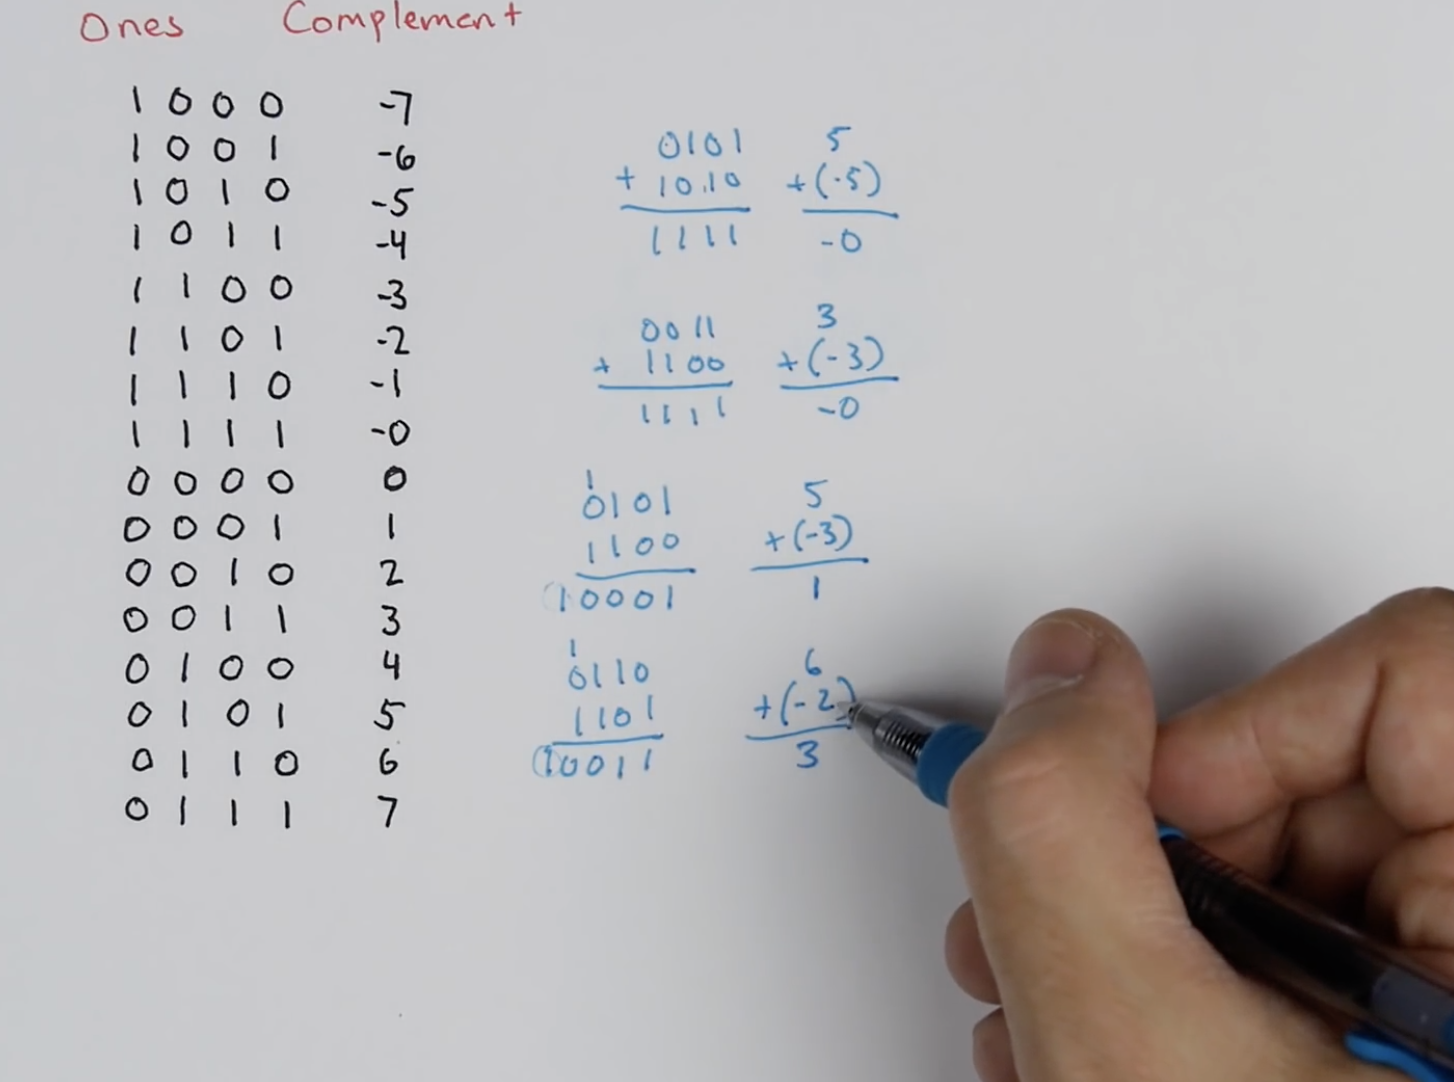 Ones Complement
1 0 0 0 -7
1 0 0 1 -6
1 0 1 0 -5
1 0 1 1 -4
1 1 0 0 -3
1 1 0 1 -2
1 1 1 0 -1
1 1 1 1 -0
0 0 0 0 0
0 0 0 1 1
0 0 1 0 2
0 0 1 1 3
0 1 0 0 4
0 1 0 1 5
0 1 1 0 6
0 1 1 1 7
0101 5
+ 1010 +(-5)
1111 -0
0011 3
+ 1100 +(-3)
1111 -0
1
0101 5
1100 +(-3)
10001 1
1
0110 6
1101 +(-2)
10011 3